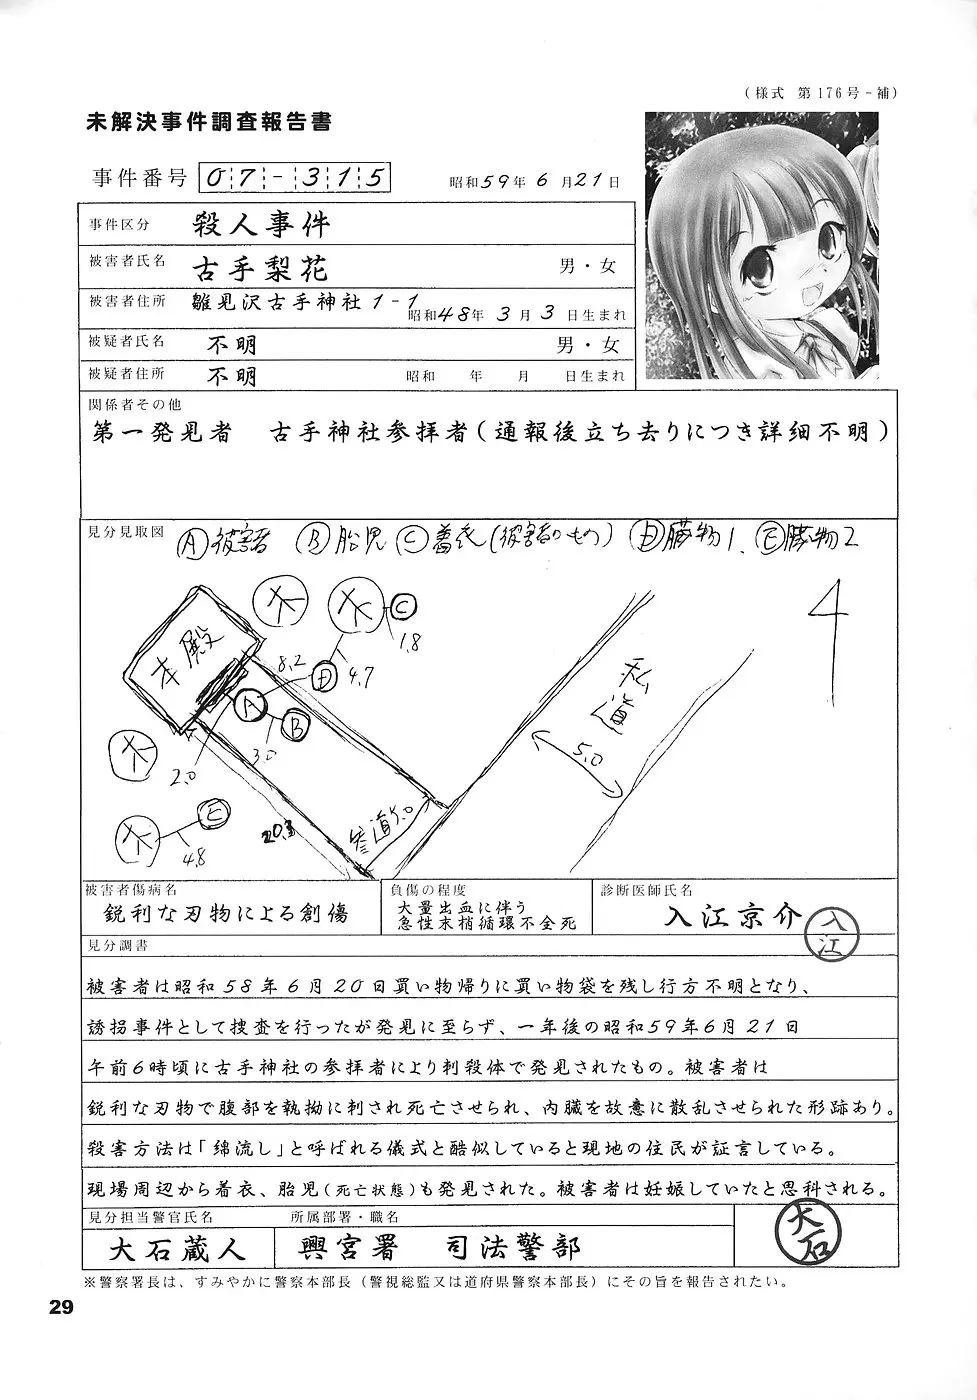 (様式 第176号-補)
未解決事件調査報告書
事件番号 07-315
昭和59年6月21日
事件区分 殺人事件
被害者氏名 古手梨花 男・女
被害者住所 雛見沢古手神社1-1 昭和48年3月3日生まれ
被疑者氏名 不明 男・女
被疑者住所 不明 昭和 年 月 日生まれ
関係者その他
第一発見者 古手神社参拝者(通報後立ち去りにつき詳細不明)
見分見取図
Ⓐ被害者 Ⓑ胎児 Ⓒ着衣(被害者のもの) Ⓓ臓物1、Ⓔ臓物2
本殿
木
木
C
1.8
8.2
D
4.7
A
B
3.0
2.0
木
木
E
4.8
20.3
参道5.0
私道
5.0
4
被害者傷病名
鋭利な刃物による創傷
負傷の程度
大量出血に伴う
急性末梢循環不全死
診断医師氏名
入江京介
入江
見分調書
被害者は昭和58年6月20日買い物帰りに買い物袋を残し行方不明となり、
誘拐事件として捜査を行ったが発見に至らず、一年後の昭和59年6月21日
午前6時頃に古手神社の参拝者により刺殺体で発見されたもの。被害者は
鋭利な刃物で腹部を執拗に刺され死亡させられ、内臓を故意に散乱させられた形跡あり。
殺害方法は「綿流し」と呼ばれる儀式と酷似していると現地の住民が証言している。
現場周辺から着衣、胎児(死亡状態)も発見された。被害者は妊娠していたと思料される。
見分担当警官氏名
大石蔵人
所属部署・職名
興宮署 司法警部
大石
※警察署長は、すみやかに警察本部長(警視総監又は道府県警察本部長)にその旨を報告されたい。
29